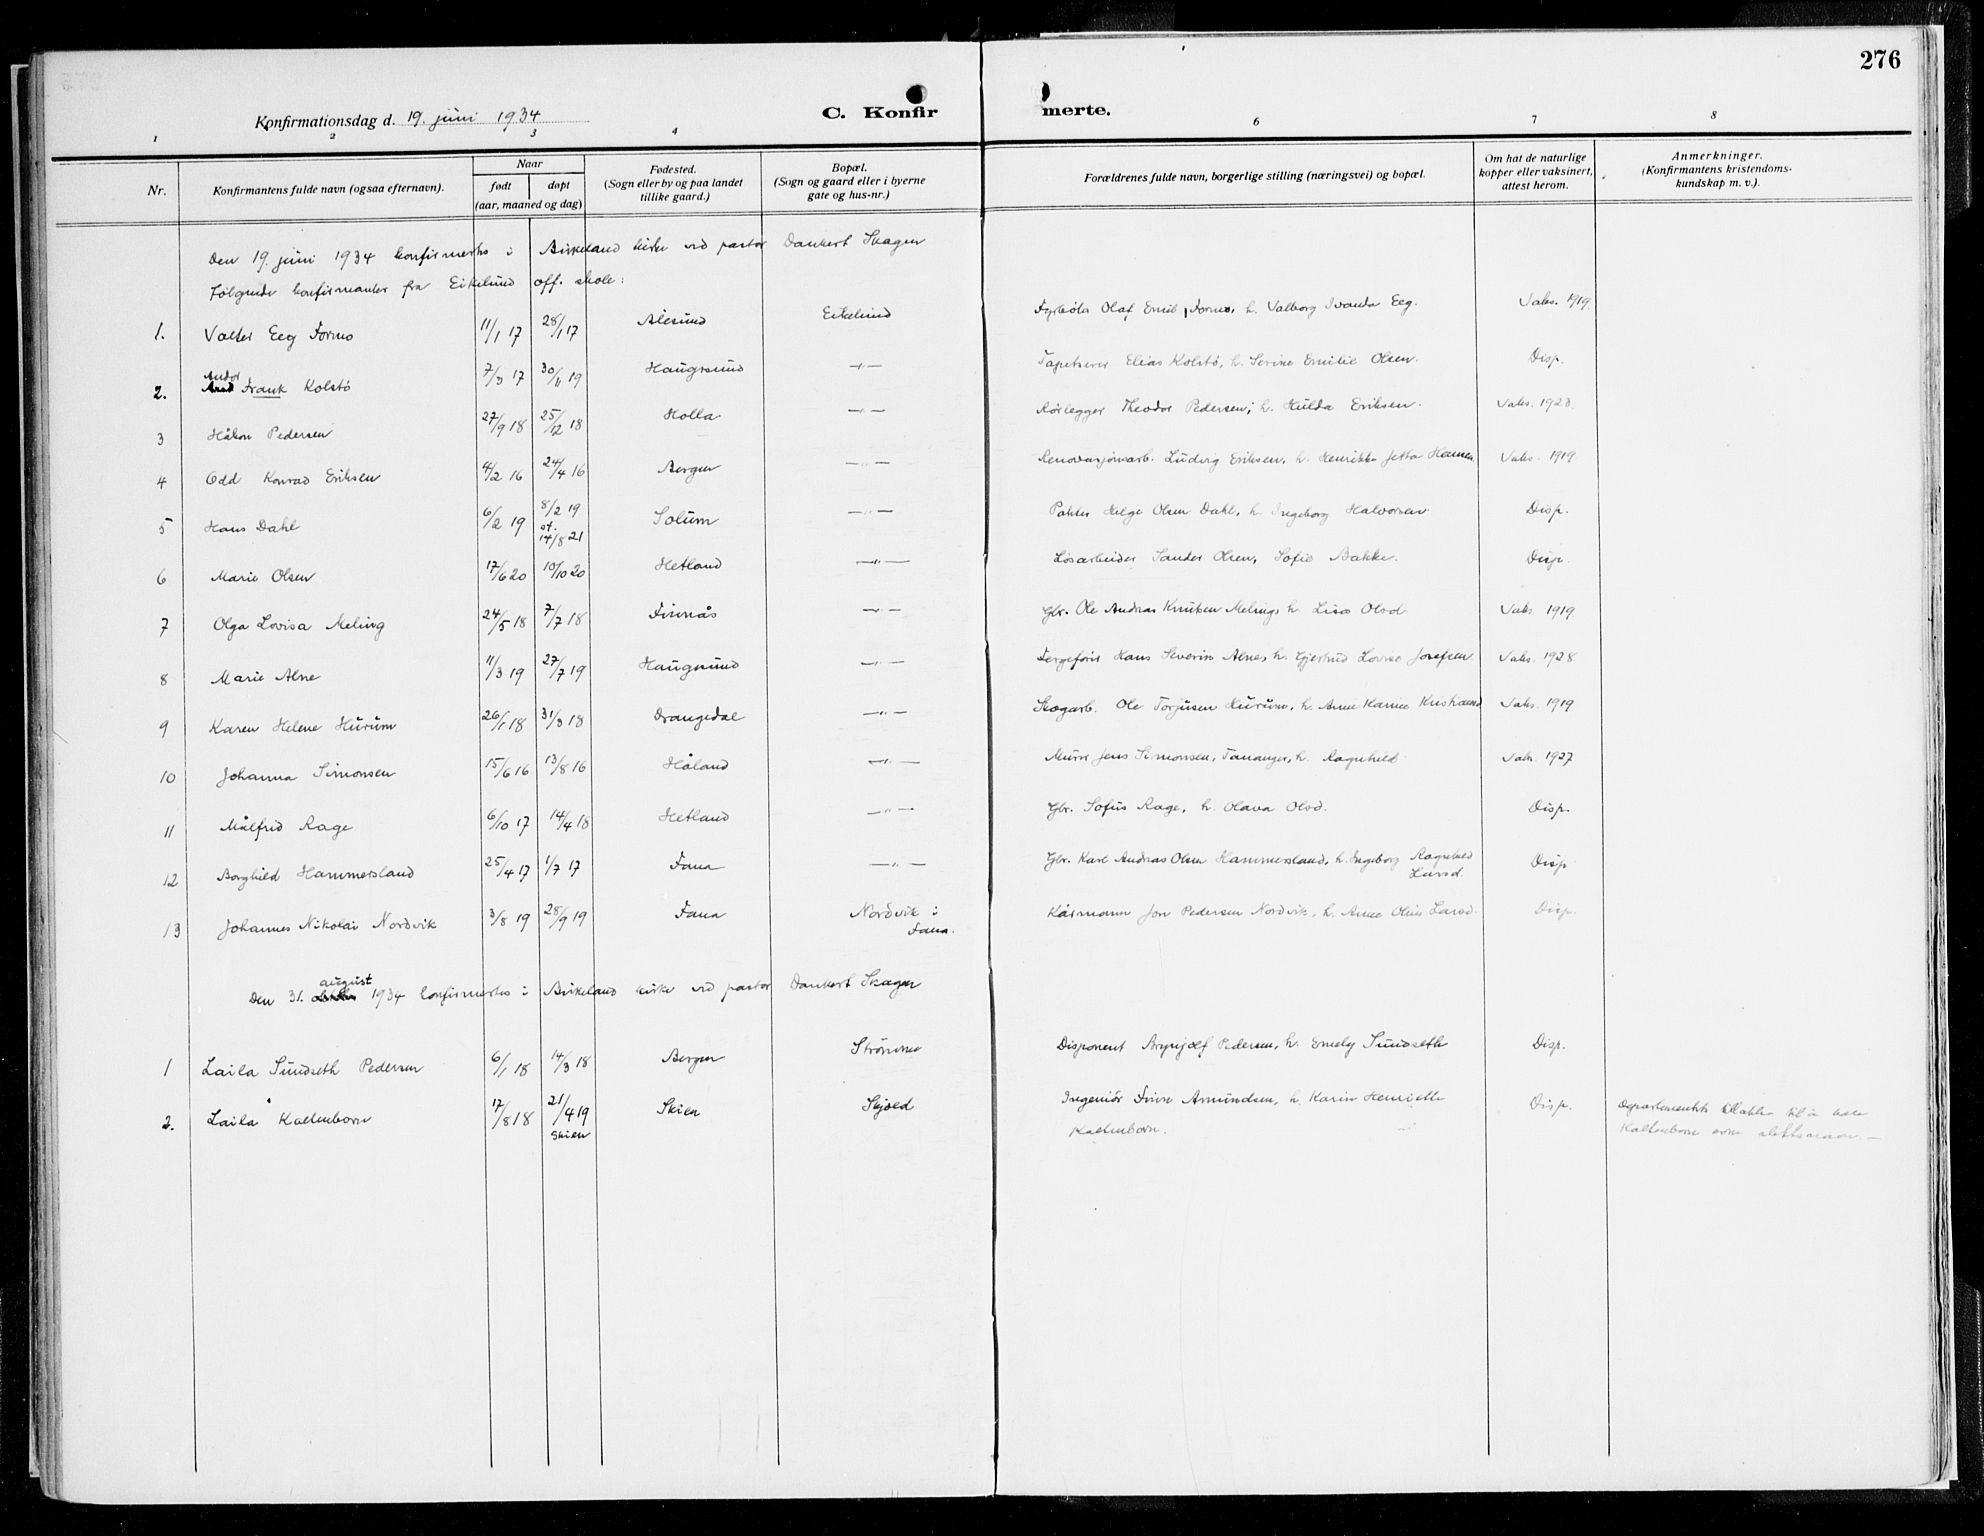 276
Konfirmationsdag d. 19. juni 1934
C. Konfir merte.
1 2 3 4 6 7 8
Nr. Konfirmantens fulde navn (ogsaa efternavn). Naar født døpt (aar, maaned og dag) Fødested. (Sogn eller by og paa landet tillike gaard.) Bopæl. (Sogn og gaard eller i byerne gate og hus-nr.) Forældrenes fulde navn, borgerlige stilling (næringsvei) og bopæl. Om hat de naturlige kopper eller vaksinert, attest herom. Anmerkninger. (Konfirmantens kristendoms-kundskap m. v.).
Den 19. juni 1934 konfirmertes i Birkeland kirke ved pastor Dankert Skagen
følgende konfirmanter fra Eikelund off. skole:
1. Valter Eeg Formo 11/1 17 28/1 17 Ålesund Eikelund Fyrbøter Olaf Emil Formo, h. Valborg Ivanda Eeg. Vaks. 1919.
2. Andor Frank Kolstö 7/3 17 30/11 19 Haugesund —"— Tapetserer Elias Kolstö, h. Serine Emilie Olsen. Disp.
3 Håkon Pedersen 27/9 18 25/12 18 Holla —"— Rörlegger Theodor Pedersen, h. Hulda Eriksen. Vaks. 1928.
4 Odd Konrad Eriksen 4/2 16 24/4 16 Bergen —"— Renovasjonsarb. Ludvig Eriksen, h. Henrikke Jetta Hansen Vaks. 1919
5 Hans Dahl 6/2 19 8/2 19 st. 14/8 21 Solum —"— Pakker Helge Olsen Dahl, h. Ingeborg Halvorsen. Disp.
6 Marie Olsen 17/6 20 10/10 20 Hetland —"— Lösarbeider Sander Olsen, Sofie Bakke. Disp.
7 Olga Lovisa Meling 24/5 18 7/7 18 Finnås —"— Gbr. Ole Andreas Knutsen Meling, h. Lisa Olsd Vaks. 1919
8 Marie Alne 11/3 19 27/7 19 Haugesund —"— Hans Severin Alne, h. Gjertrud Lovise Josefsen. Vaks. 1928.
9 Karen Helene Hurum 26/1 18 31/3 18 Drangedal —"— Skogarb. Ole Torjusen Hurum, h. Anne Karine Kristiansd Vaks. 1919
10 Johanna Simonsen 15/6 16 13/8 16 Håland —"— Murer Jens Simonsen, Tananger, h. Ragnhild Vaks. 1927
11 Målfrid Rage 6/10 17 14/4 18 Hetland —"— Gbr. Sofus Rage, h. Olava Olsd. Disp.
12 Borghild Hammersland 25/4 17 1/7 17 Fana —"— Gbr. Karl Andreas Olsen Hammersland, h. Ingeborg Ragnhild Larsd. Disp
13 Johannes Nikolai Nordvik 3/8 19 28/9 19 Fana Nordvik i Fana. Kårmann Jon Pedersen Nordvik, h. Anne Oline Larsd. Disp.
Den 31. august 1934 konfirmertes i Birkeland kirke ved pastor Dankert Skagen
1 Laila Sundseth Pedersen 6/1 18 14/3 18 Bergen Strömme Disponent Arnjolf Pedersen, h. Emely Sundseth Disp.
2. Laila Kaltenborn 17/8 18 21/4 19 Skien Skien Skjold Ingeniör Finn Amundsen, h. Karin Henriette Kaltenborn. Disp. Departementets tillatelse til å bære
Kaltenborn som slektsnavn.—